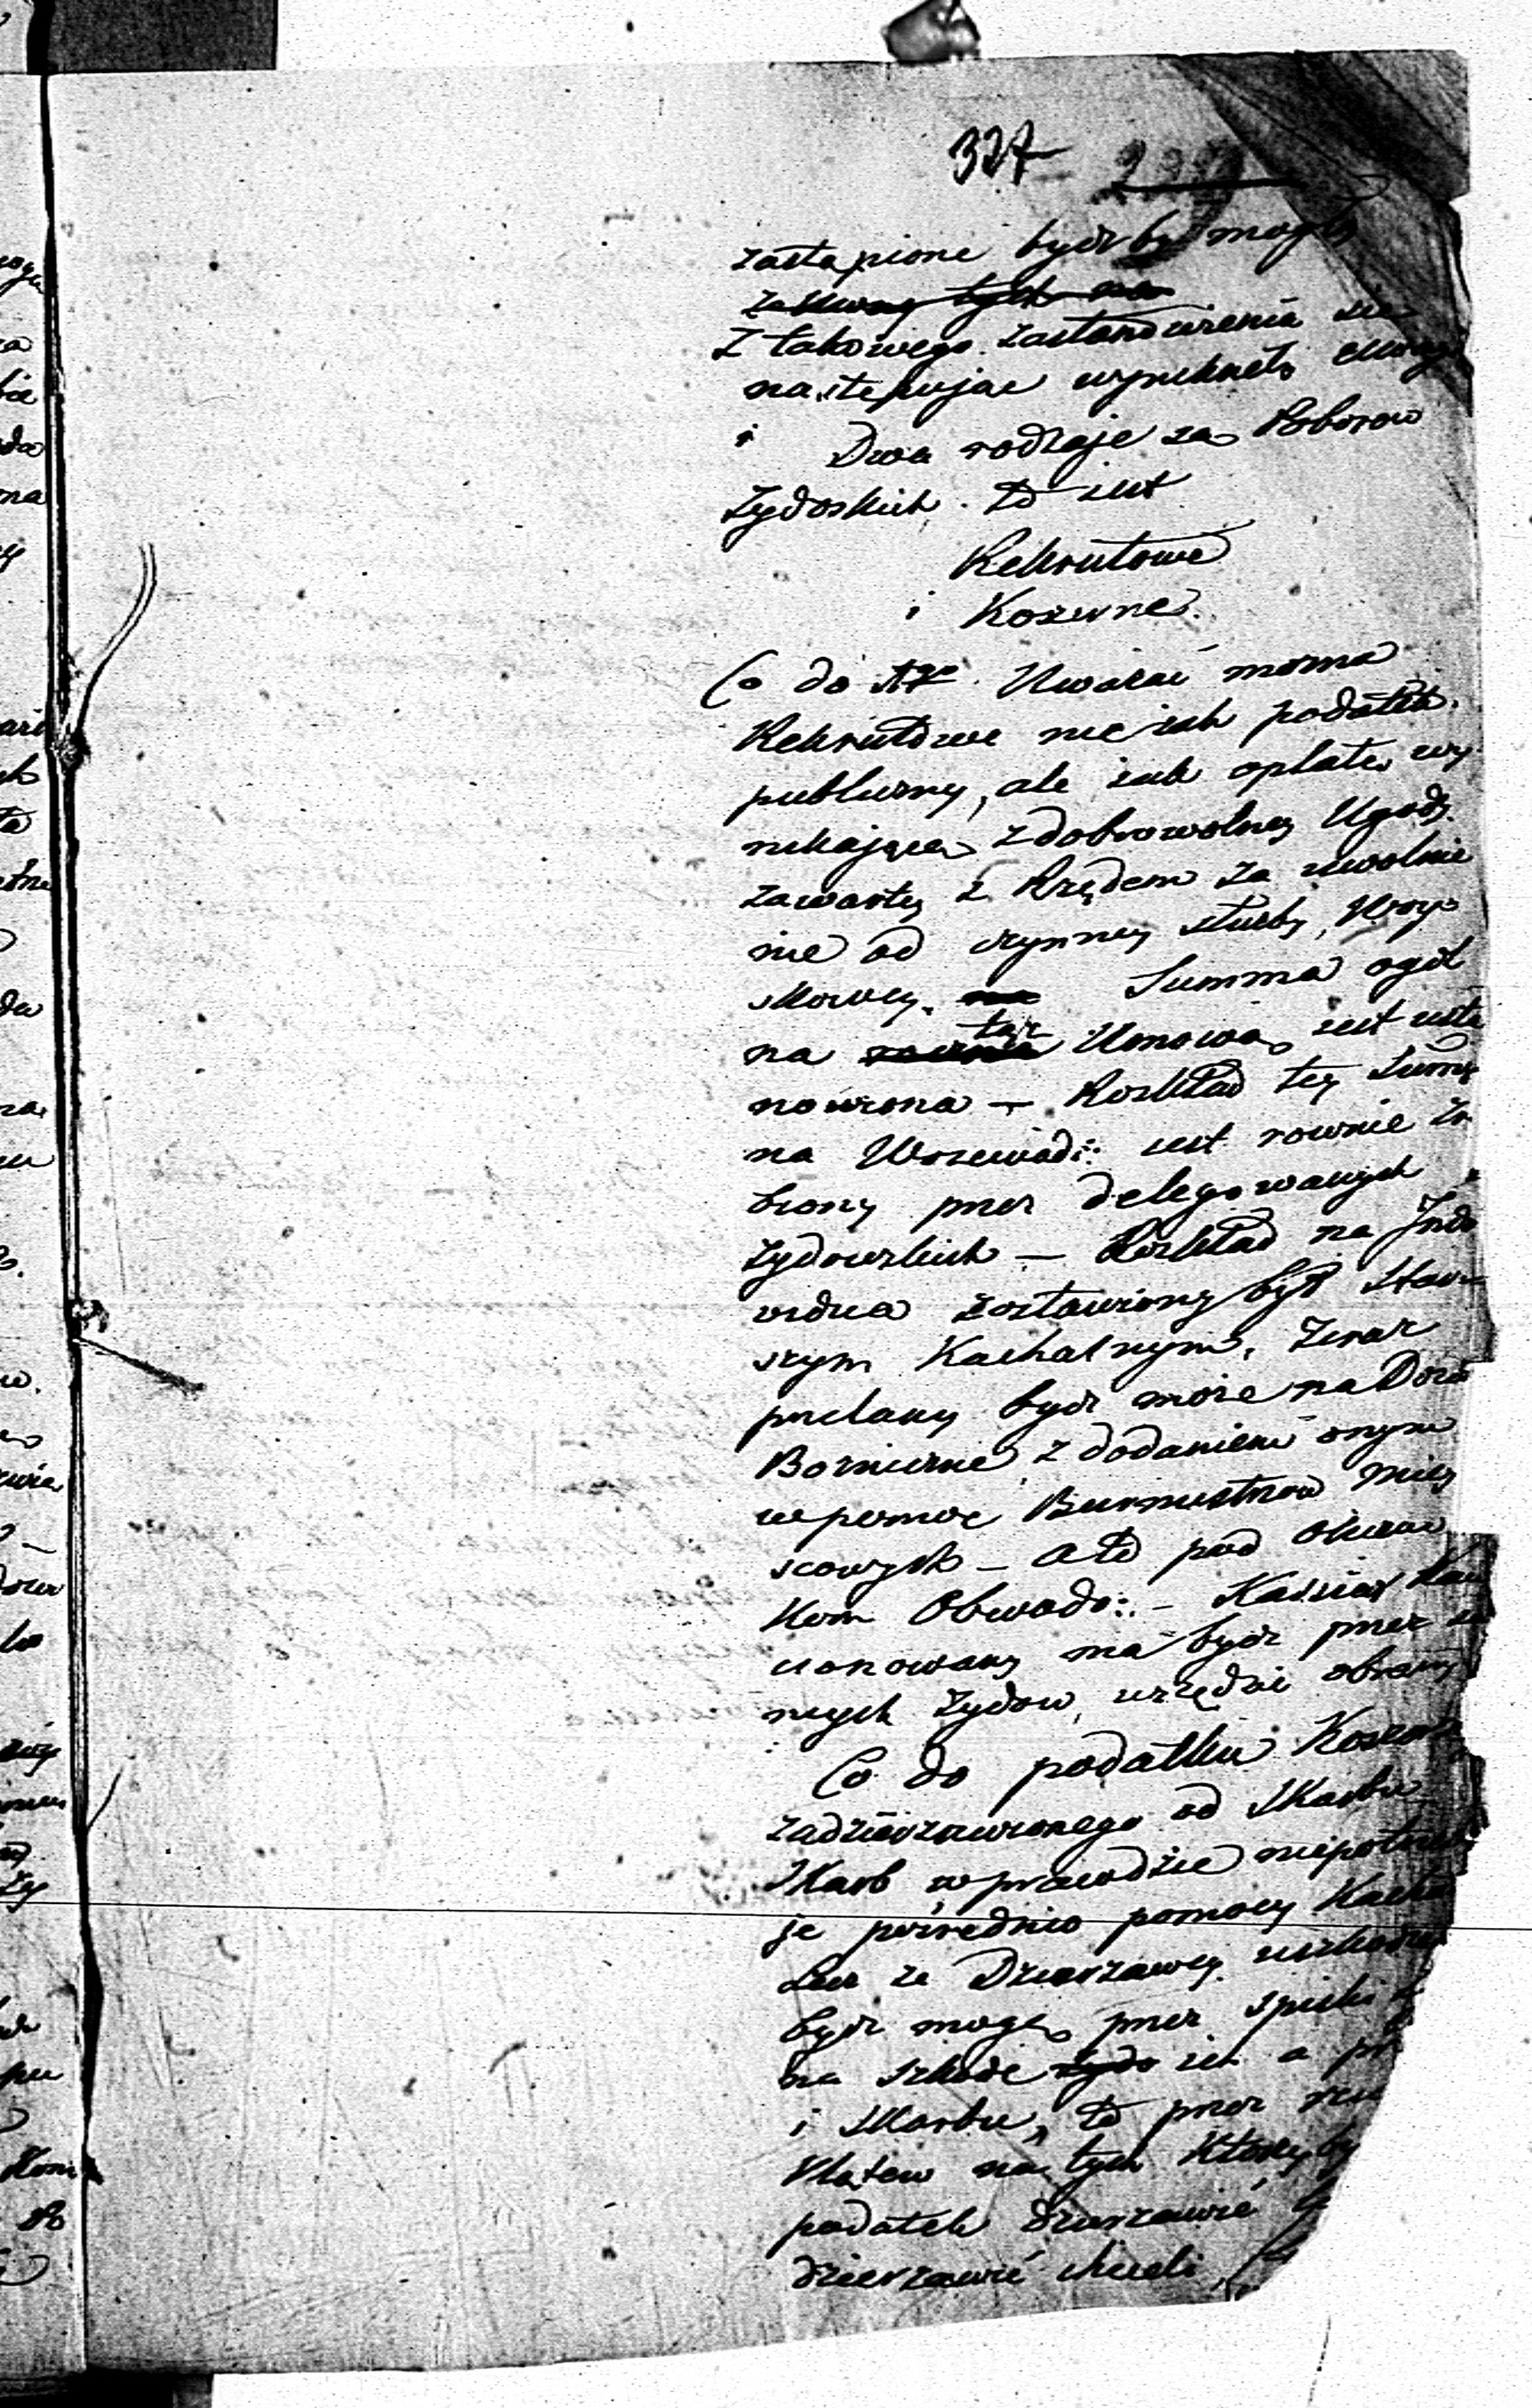 327
zastąpione bydź by mogły
z takowego zastanowienia sie
następujące wyniknęło
Dwa rodzaje są Poborow
Zydoskich to iest
Rekrutowe
i Koszerne.
Co do 1go Uważać można
Rekrutowe nie iak podatek
publiczny, ale iak opłatę wy
nikającą z dobrowolney Ugody
zawartey z Rządem za uwolnie
nie od czynney służby, Woy
skowey. Summa ogól
na taż Umową iest usta
nowiona — Rozkład tey Summy
na Woiewodz: iest rownie zro
biony przez delegowanych
Zydowskich — Rozkład na Indi
vidua zostawiony był Star
szym Kachalnym, teraz
przelany bydź może na Dozo
Boznicze z dodaniem onym
w pomoc Burmistrzow miey
scowych — a to pod okiem
Kom Obwodo: — Kassier Kau
cionowany ma bydź przez
nych Zydow, urzędzie obrany
Co do podatku Koszer
zadzierzawionego od Skarbu
Skarb w prawdzie niepotrzebu
je pośrednio pomocy Kacha
Lecz że Dzierzawcy uszkodze
bydź mogą przez spiski
na szkodę ich a
i Skarbu, to przez rzu
klątew na tych ktorzy by
podatek dzierzawić
dzierzawić chcieli